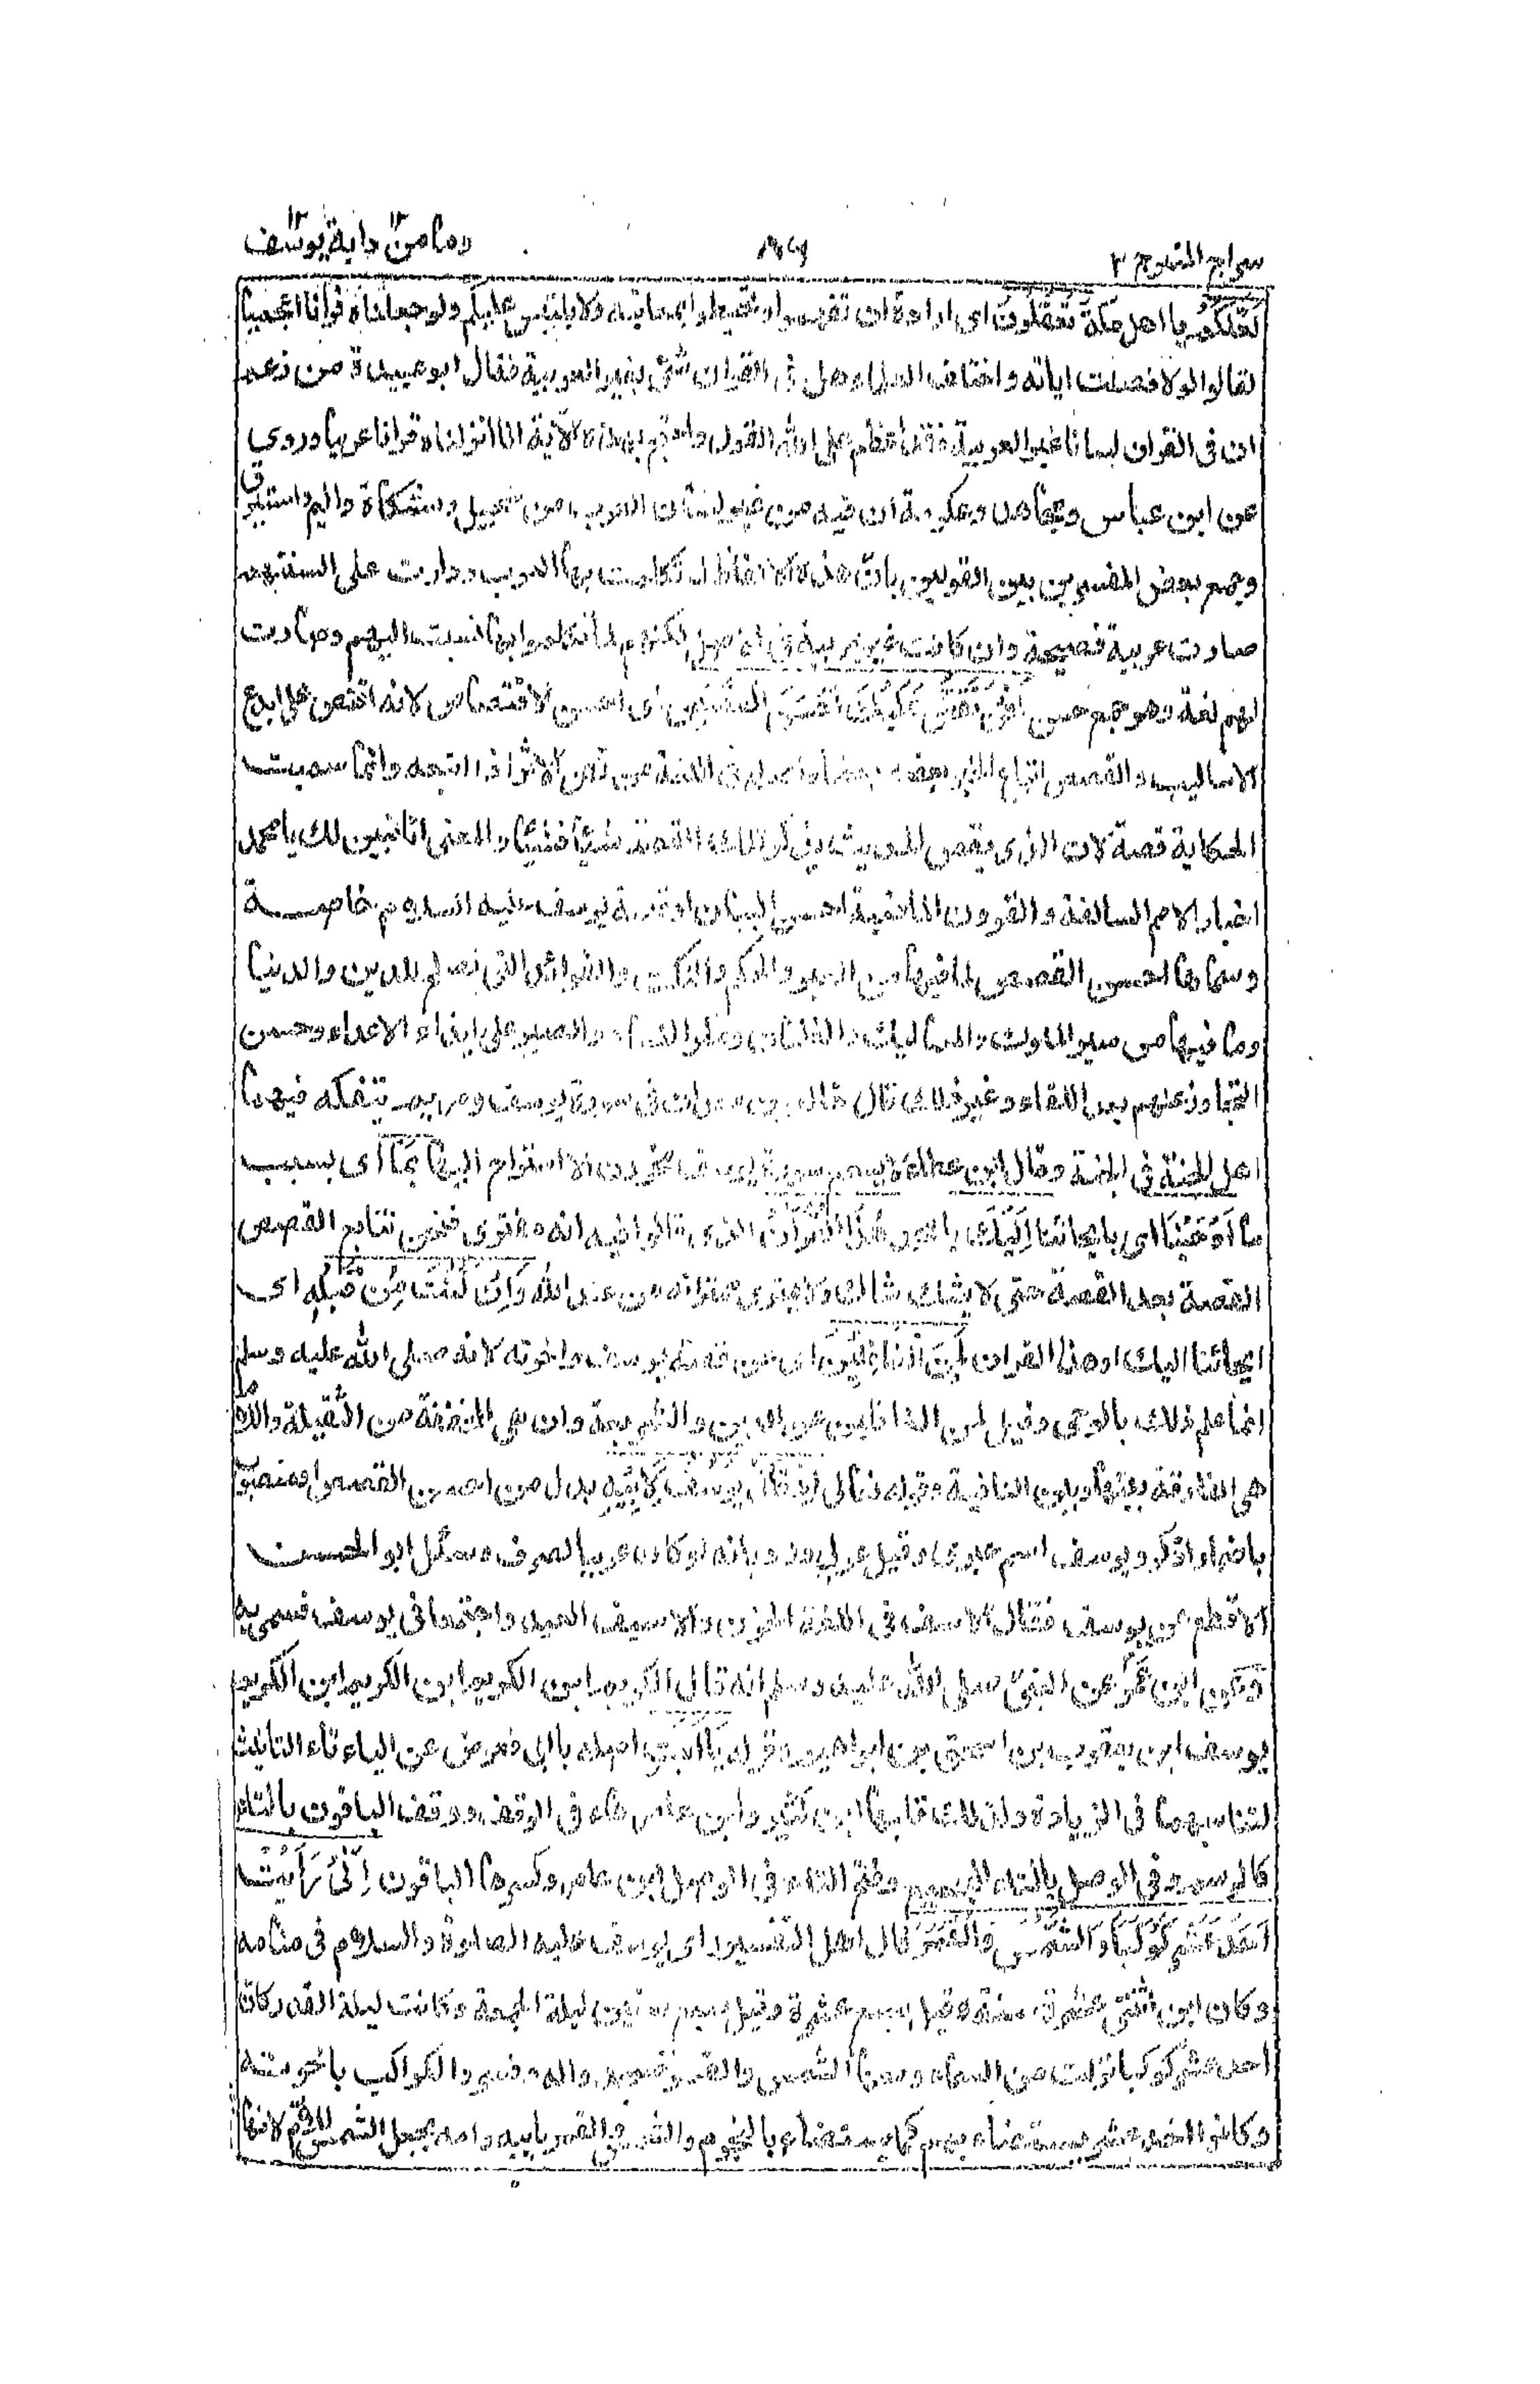 سراج المنير ج ٢
وما من دابة يوسف
لَعَلَّكُمْ يا اهل مكة تَعْقِلُونَ اى ارادة ان تفهموا وتحيطوا بمعانيه ولا يلتبس عليكم ولو جعلناه قرانا اعجميا
لقالوا لولا فصلت اياته واختلف العلماء هل فى القران شئ بغير العربية فقال ابو عبيدة من زعم
ان فى القران لسانا غير العربية فقد اعظم على الله القول واحتج بهذه الآية انا انزلناه قرانا عربيا وروى
عن ابن عباس ومجاهد وعكرمة ان فيه من غير لسان العرب من سجيل ومشكاة واليم واستبرق
وجمع بعض المفسرين بين القولين بان هذه الالفاظ لما تكلمت بها العرب ودارت على السنتهم
صارت عربية فصيحة وان كانت غير عربية فى الاصل لكنهم لما تكلموا بها نسبت اليهم وصارت
لهم لغة وهو جمع حسن نَحْنُ نَقُصُّ عَلَيْكَ اَحْسَنَ الْقَصَصِ اى احسن الاقتصاص لانه اقتص على ابدع
الاساليب والقصص اتباع الخبر بعضه بعضا واصله فى اللغة من قص الاثر اذا اتبعه وانما سميت
الحكاية قصة لان الذى يقص الحديث يذكر تلك القصة شيئا فشيئا والمعنى انا نبين لك يا محمد
اخبار الامم السالفة والقرون الماضية احسن البيان او قصة يوسف عليه السلام خاصة
وسماها احسن القصص لما فيها من العبر والحكم والنكت والفوائد التى تصلح للدين والدنيا
وما فيها من سير الملوك والمماليك والعلماء ومكر النساء والصبر على ايذاء الاعداء وحسن
التجاوز عنهم بعد اللقاء وغير ذلك قال خالد بن معدان فى سورة يوسف ومريم تتفكه فيهما
اهل الجنة فى الجنة وقال ابن عطاء لا يسمع سورة يوسف محزون الا استراح اليها بِمَا اى بسبب
ما اَوْحَيْنَا اى بايحائنا اِلَيْكَ يا محمد هٰذَا الْقُرْاٰنَ الذى قالوا فيه انه مفترى فنحن نتابع القصص
القصة بعد القصة حتى لا يشك شاك ولا يمترى ممتر انه من عند الله وَاِنْ كُنْتَ مِنْ قَبْلِهٖ اى
ايحائنا اليك او هذا القران لَمِنَ الْغَافِلِيْنَ اى عن قصة يوسف واخوته لانه صلى الله عليه وسلم
انما علم ذلك بالوحى وقيل لمن الغافلين عن الدين والشريعة وان هى المخففة من الثقيلة واللام
هى الفارقة بينها وبين النافية وقوله تعالى اِذْ قَالَ يُوْسُفُ لِاَبِيْهِ بدل من احسن القصص او منصوب
باضمار اذكر ويوسف اسم عبرى وقيل عربى ورد بانه لو كان عربيا لصرف وسئل ابو الحسن
الاقطع عن يوسف فقال الاسف فى اللغة الحزن والاسيف العبد واجتمعا فى يوسف فسمى به
وعن ابن عمر عن النبى صلى الله عليه وسلم انه قال الكريم ابن الكريم ابن الكريم ابن الكريم
يوسف ابن يعقوب بن اسحق بن ابراهيم وقوله يَا اَبَتِ اصله يا ابى فعوض عن الياء تاء التانيث
لتناسبهما فى الزيادة ولذلك قلبها ابن كثير وابن عامر هاء فى الوقف ووقف الباقون بالتاء
كالرسم وفى الوصل بالتاء للجميع وفتح التاء فى الوصل ابن عامر وكسرها الباقون اِنِّىْ رَاَيْتُ
اَحَدَ عَشَرَ كَوْكَبًا وَّالشَّمْسَ وَالْقَمَرَ قال اهل التفسير راى يوسف عليه الصلوة والسلام فى منامه
وكان ابن اثنتى عشرة سنة وقيل سبع عشرة وقيل سبع سنين ليلة الجمعة وكانت ليلة القدر كان
احد عشر كوكبا نزلت من السماء ومعها الشمس والقمر فسجدوا له وفسروا الكواكب باخوته
وكانوا احد عشر يستضاء بهم كما يستضاء بالنجوم والشمس والقمر بابيه وامه بجعل الشمس للام لانها